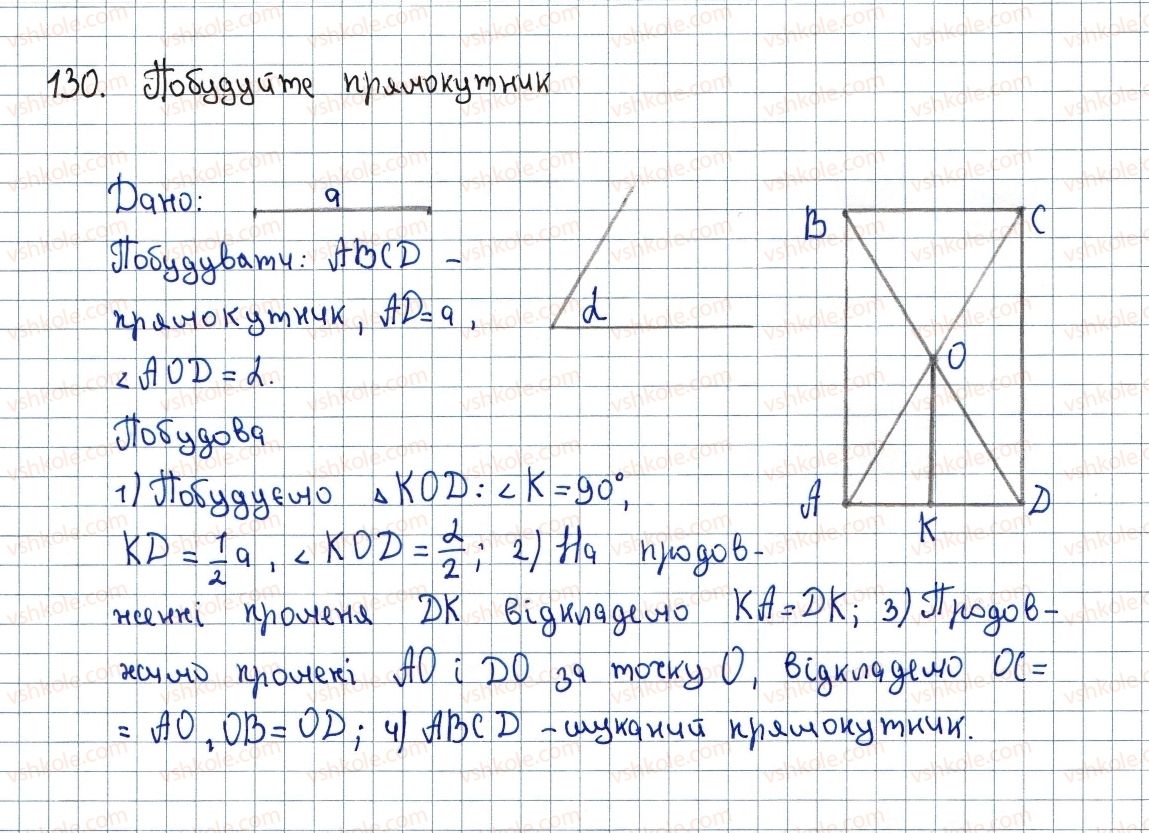 130. Побудуйте прямокутник
Дано: a
Побудувати: ABCD –
прямокутник, AD = a,
∠AOD = α.
α
Побудова
1) Побудуємо △KOD: ∠K = 90°,
KD = 1/2 a, ∠KOD = α/2; 2) На продов-
женні променя DK відкладемо KA = DK; 3) Продов-
жимо промені AO і DO за точку O, відкладемо OC =
= AO, OB = OD; 4) ABCD – шуканий прямокутник.
B C
O
A K D
vshkole.com